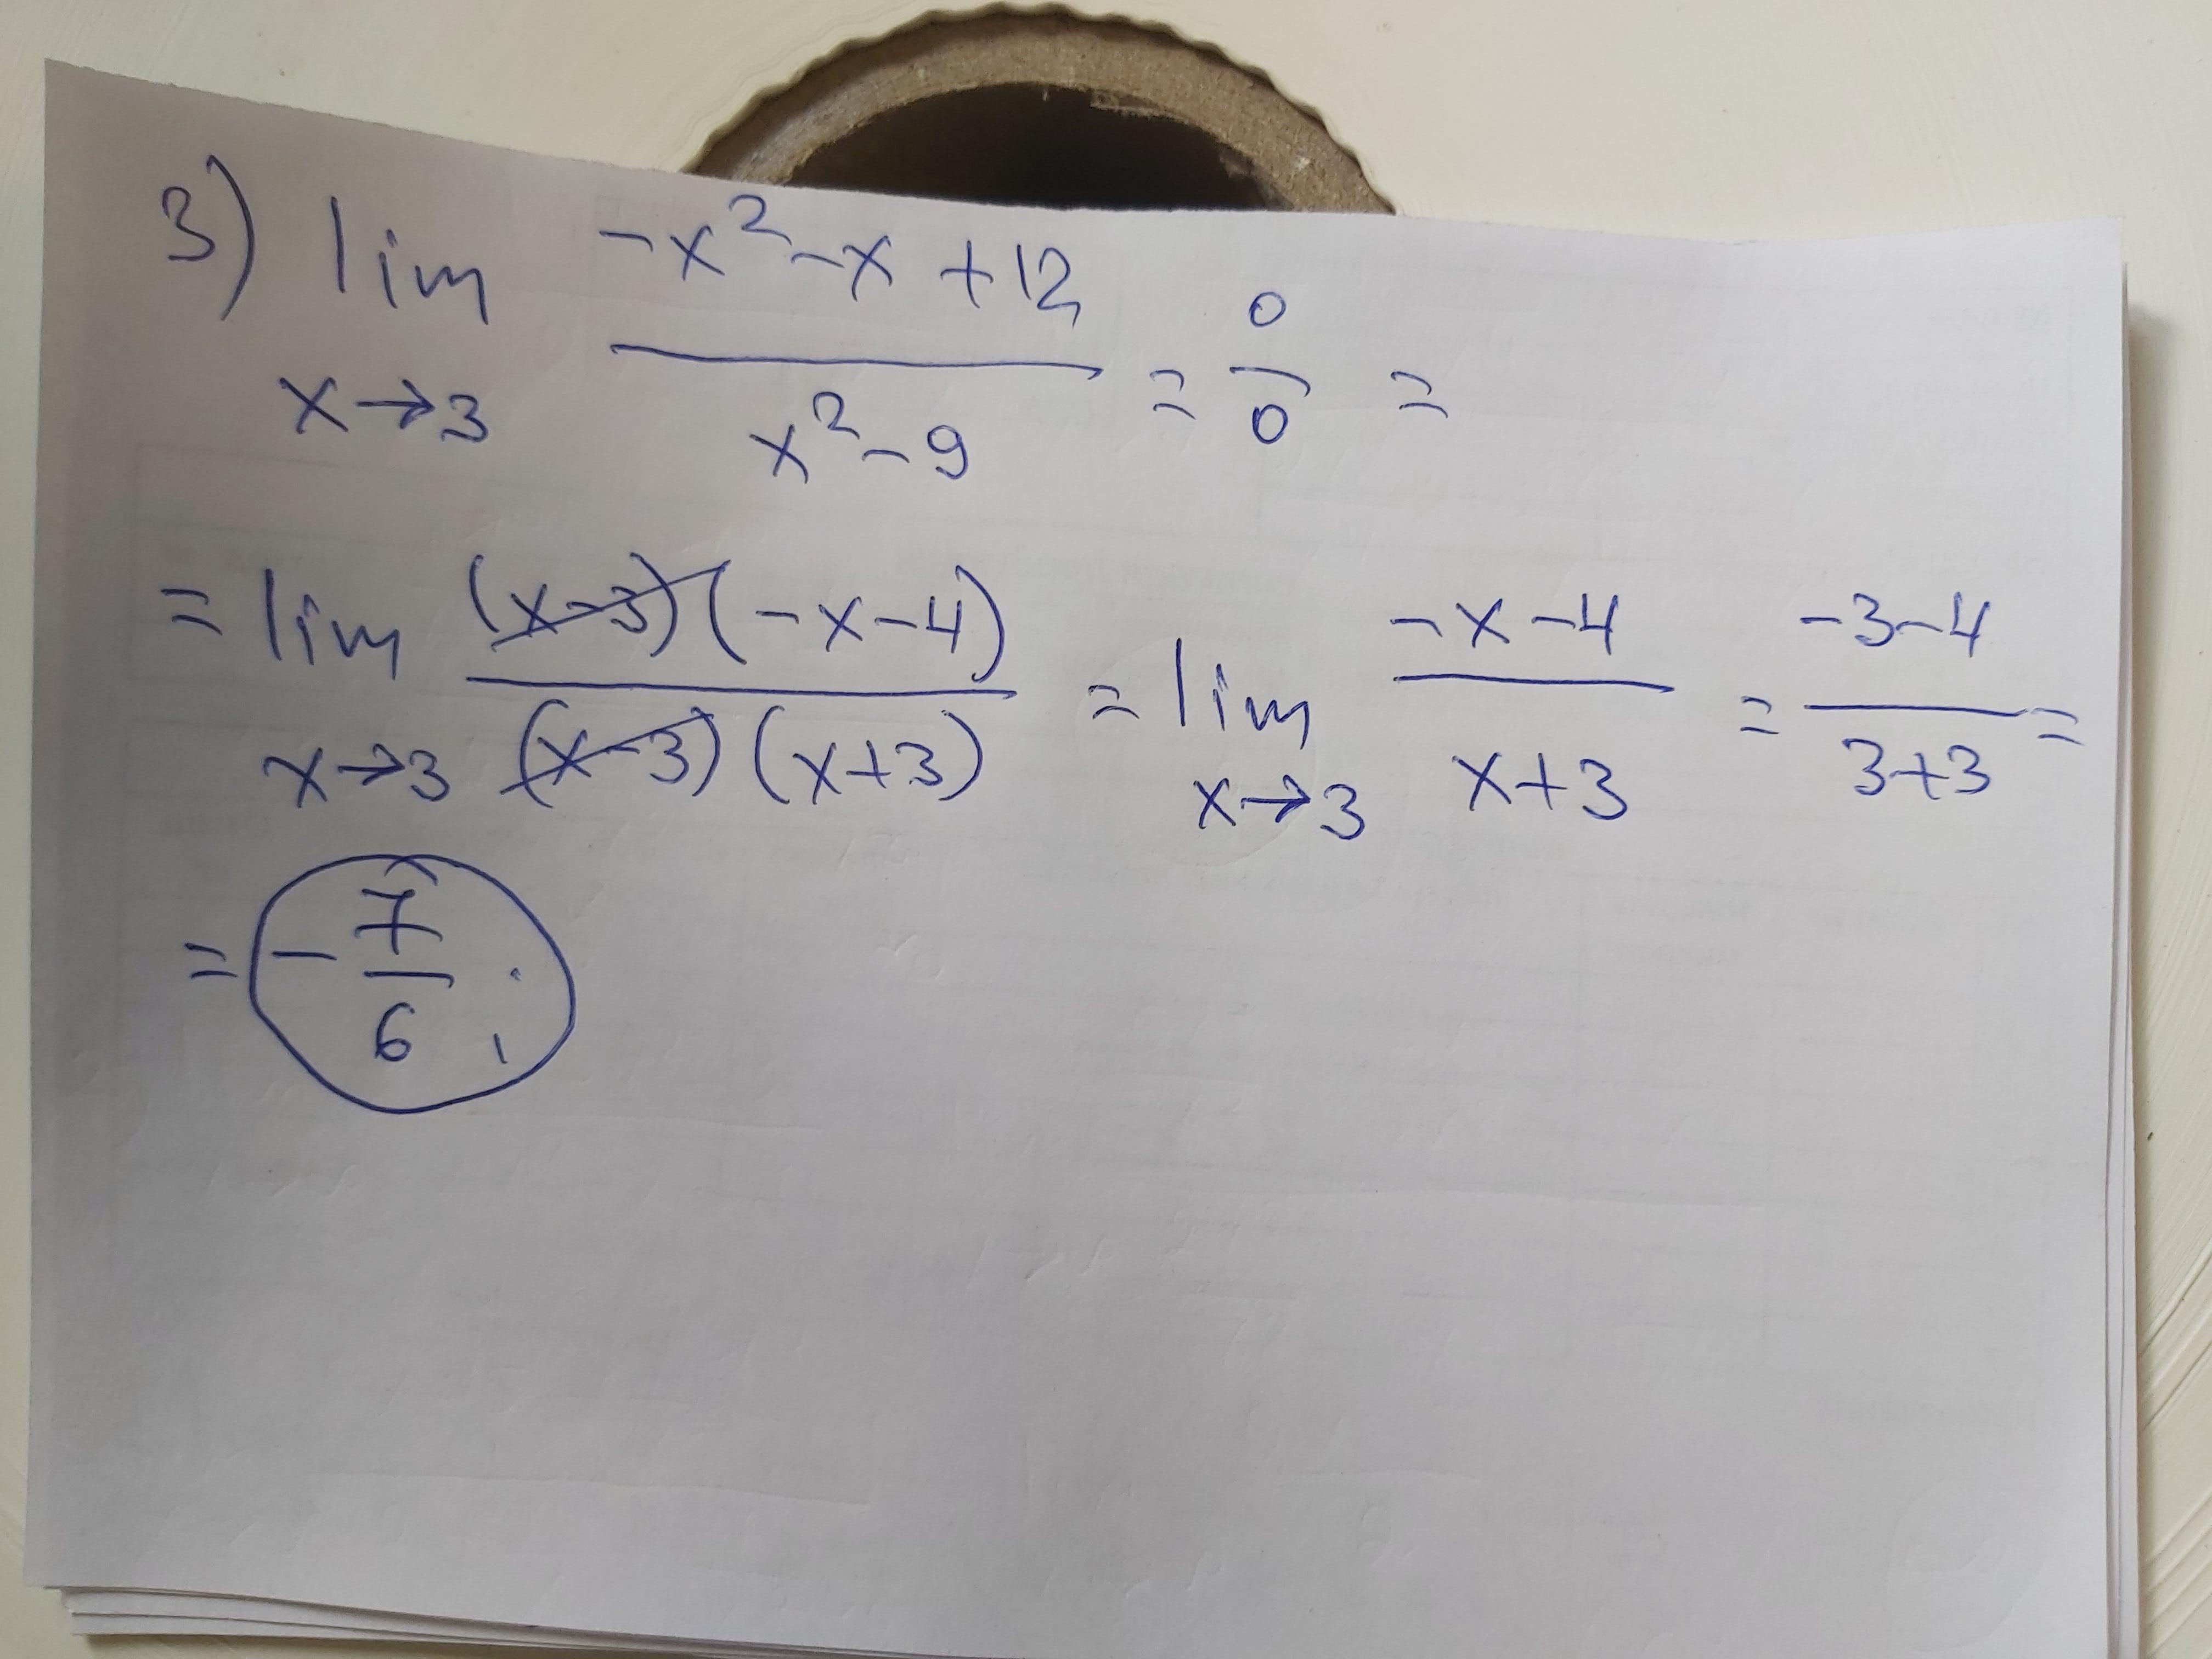 3) lim x→3 (-x² - x + 12)/(x² - 9) = 0/0 =
= lim x→3 ((x-3)(-x-4))/((x-3)(x+3)) = lim x→3 (-x-4)/(x+3) = (-3-4)/(3+3) =
= -7/6 ;